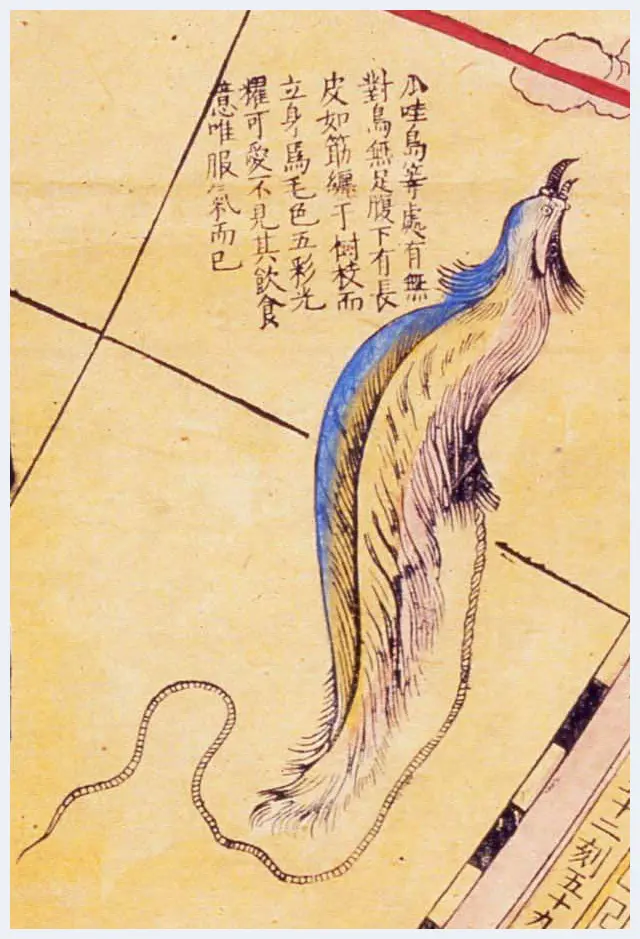 瓜哇島等處有無
對鳥無足腹下有長
皮如筋纏于樹枝而
立身馬毛色五彩光
耀可愛不見其飲食
意唯服氣而已
十二刻五十九